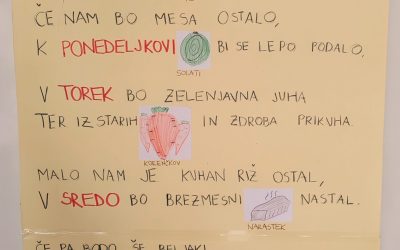 ČE NAM BO MESA OSTALO,
K PONEDELJKOVI BI SE LEPO PODALO,
SOLATI
V TOREK BO ZELENJAVNA JUHA
TER IZ STARIH IN ZDROBA PRIKUHA.
KORENČKOV
MALO NAM JE KUHAN RIŽ OSTAL,
V SREDO BO BREZMESNI NASTAL.
NARASTEK
ČE PA BODO ŠE BELJAKI